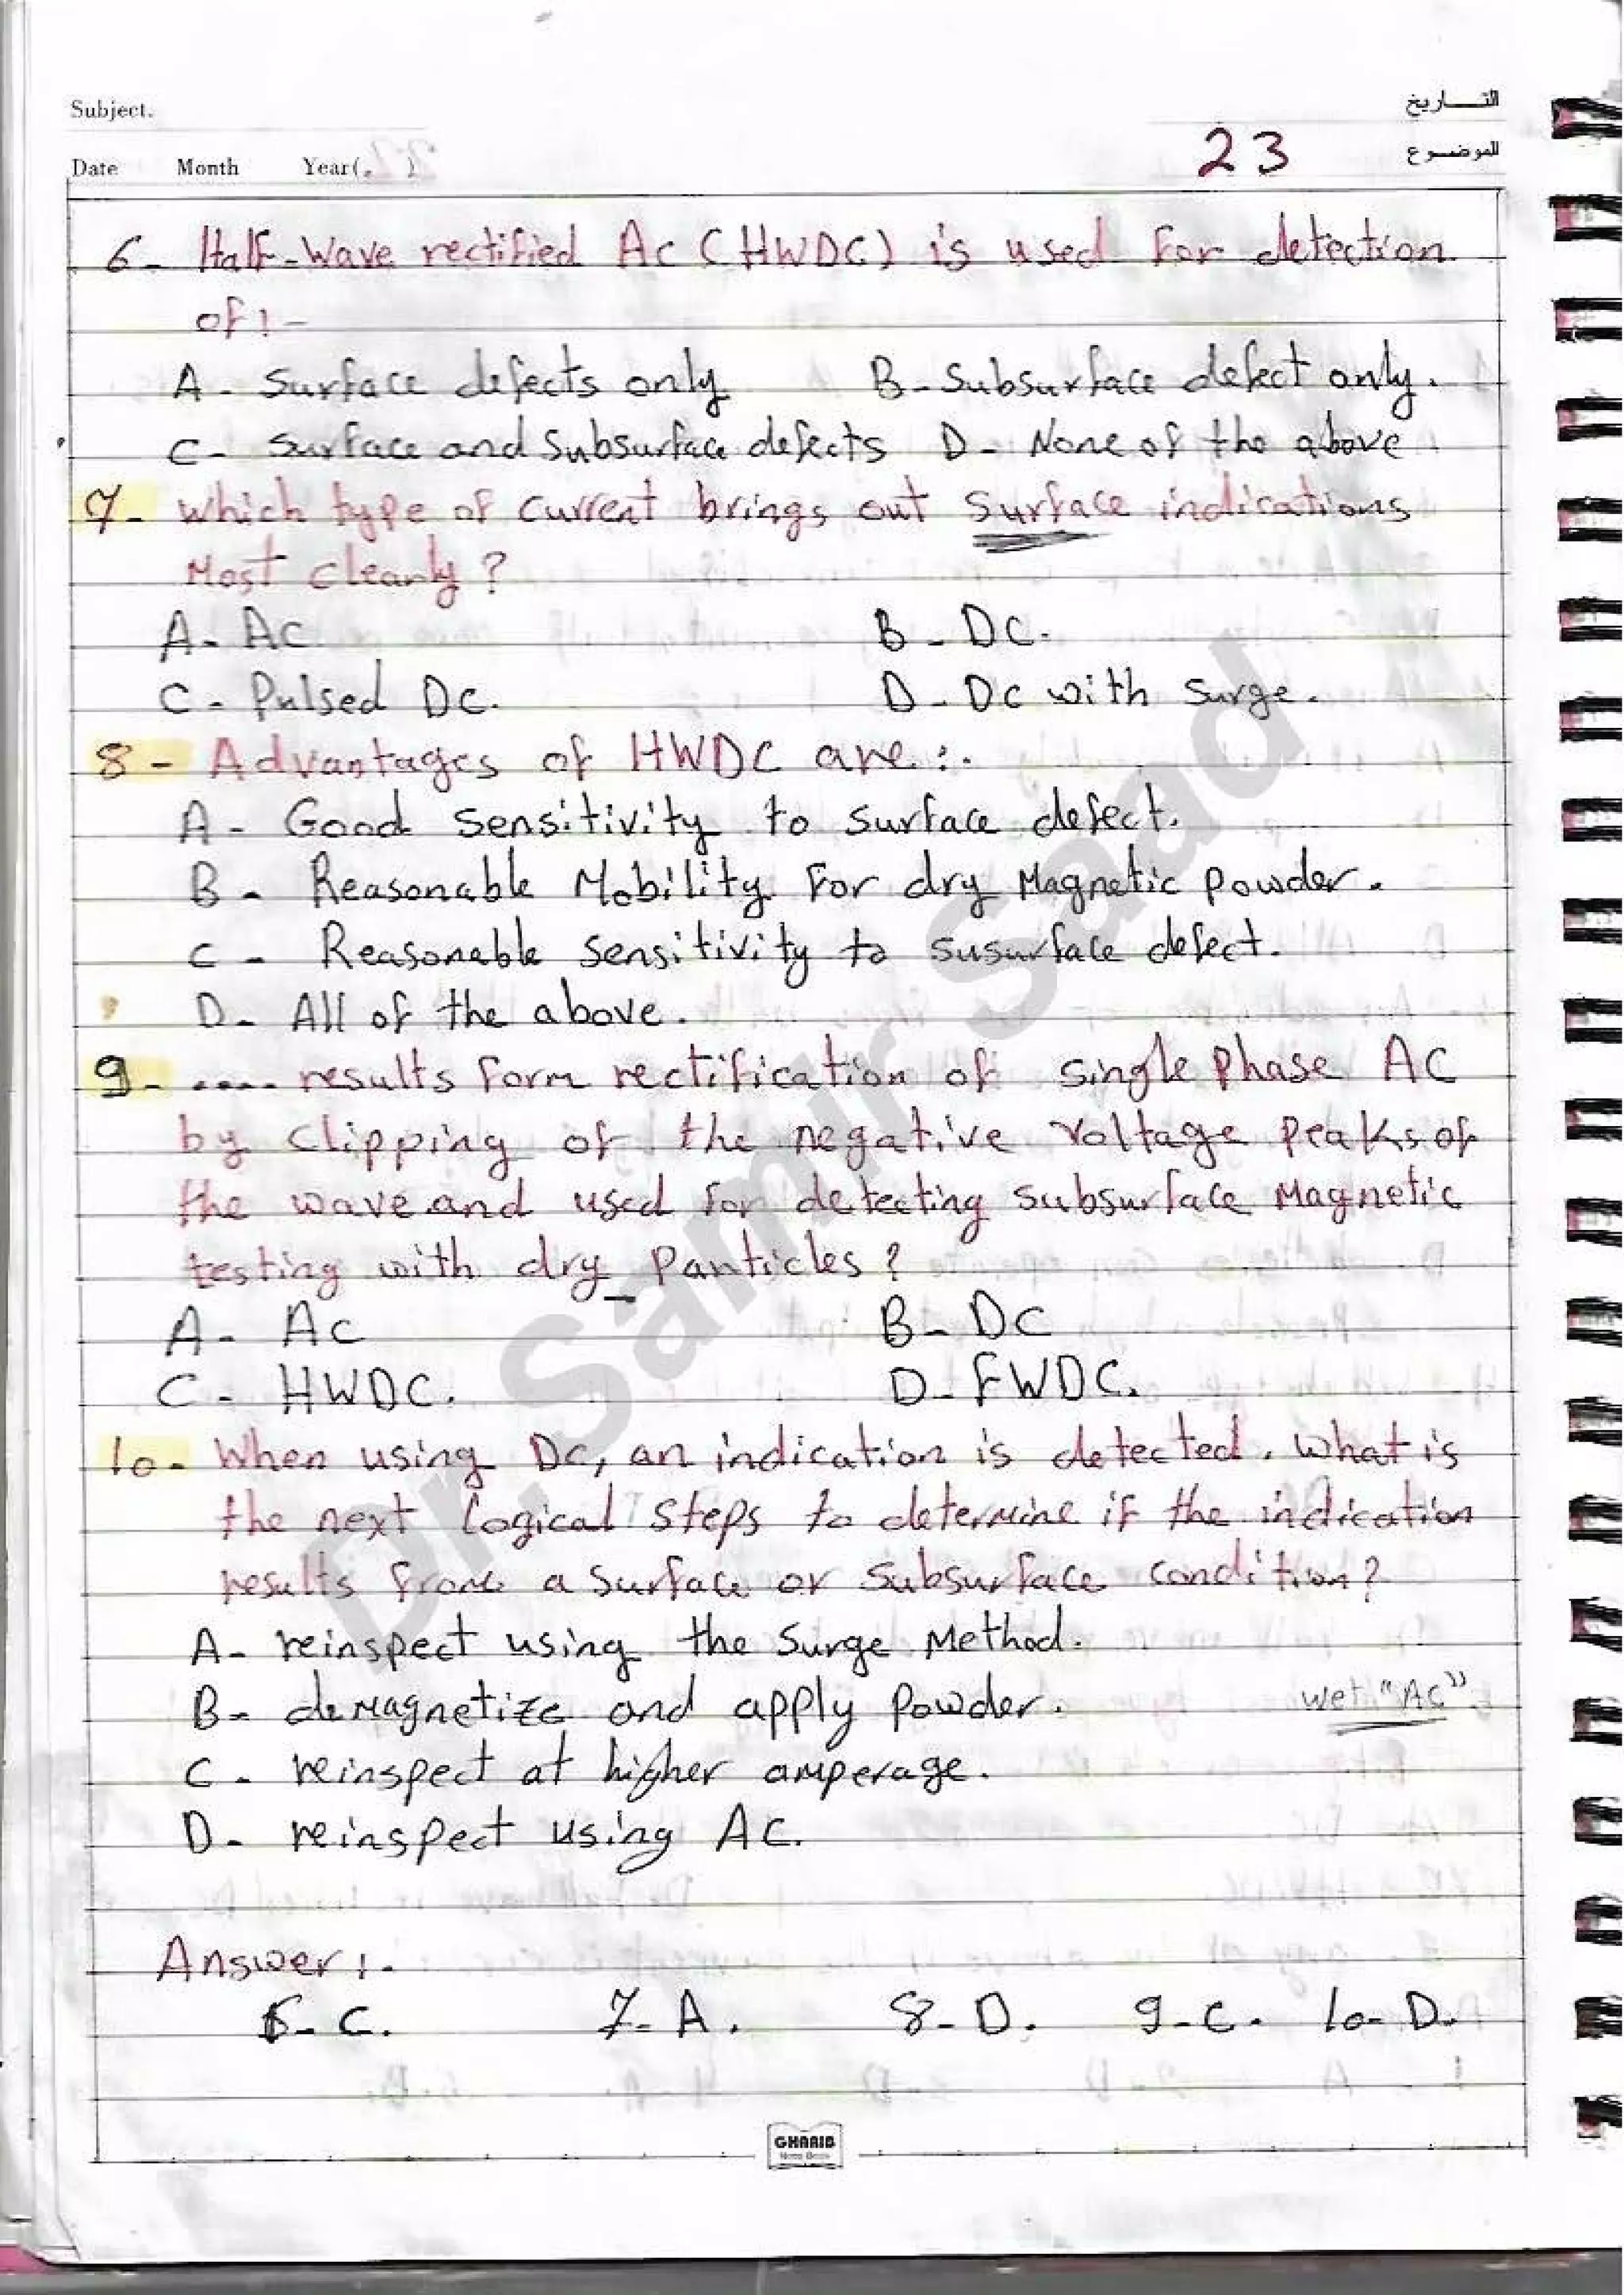 Subject.
التـــاريخ
Date Month Year( )
23
الموضـــوع
6- Half-Wave rectified Ac (HWDC) is used for detection
of:-
A- Surface defects only B- Subsurface defect only.
C- Surface and Subsurface defects D- None of the above
7- Which type of Current brings out Surface indications
Most Clearly?
A- AC B- DC.
C- Pulsed DC. D- DC with Surge.
8- Advantages of HWDC are:.
A- Good Sensitivity to Surface defect.
B- Reasonable Mobility For dry Magnetic Powder.
C- Reasonable Sensitivity to Susurface defect.
D- All of the above.
9- .... results Form rectification of Single Phase AC
by Clipping of the negative Voltage Peaks of
the wave and used for detecting Subsurface Magnetic
testing with dry Particles?
A- AC B- DC
C- HWDC. D- FWDC.
10- When using DC, an indication is detected. What is
the next Logical Steps to determine if the indication
results from a Surface or Subsurface Condition?
A- reinspect using the Surge Method.
B- deMagnetize and apply Powder. wet "AC"
C- reinspect at higher amperage.
D- reinspect using AC.
Answer:.
6-C. 7-A. 8-D. 9-C. 10-D.
GHARIB
Note Book
Dr. Samir Saad